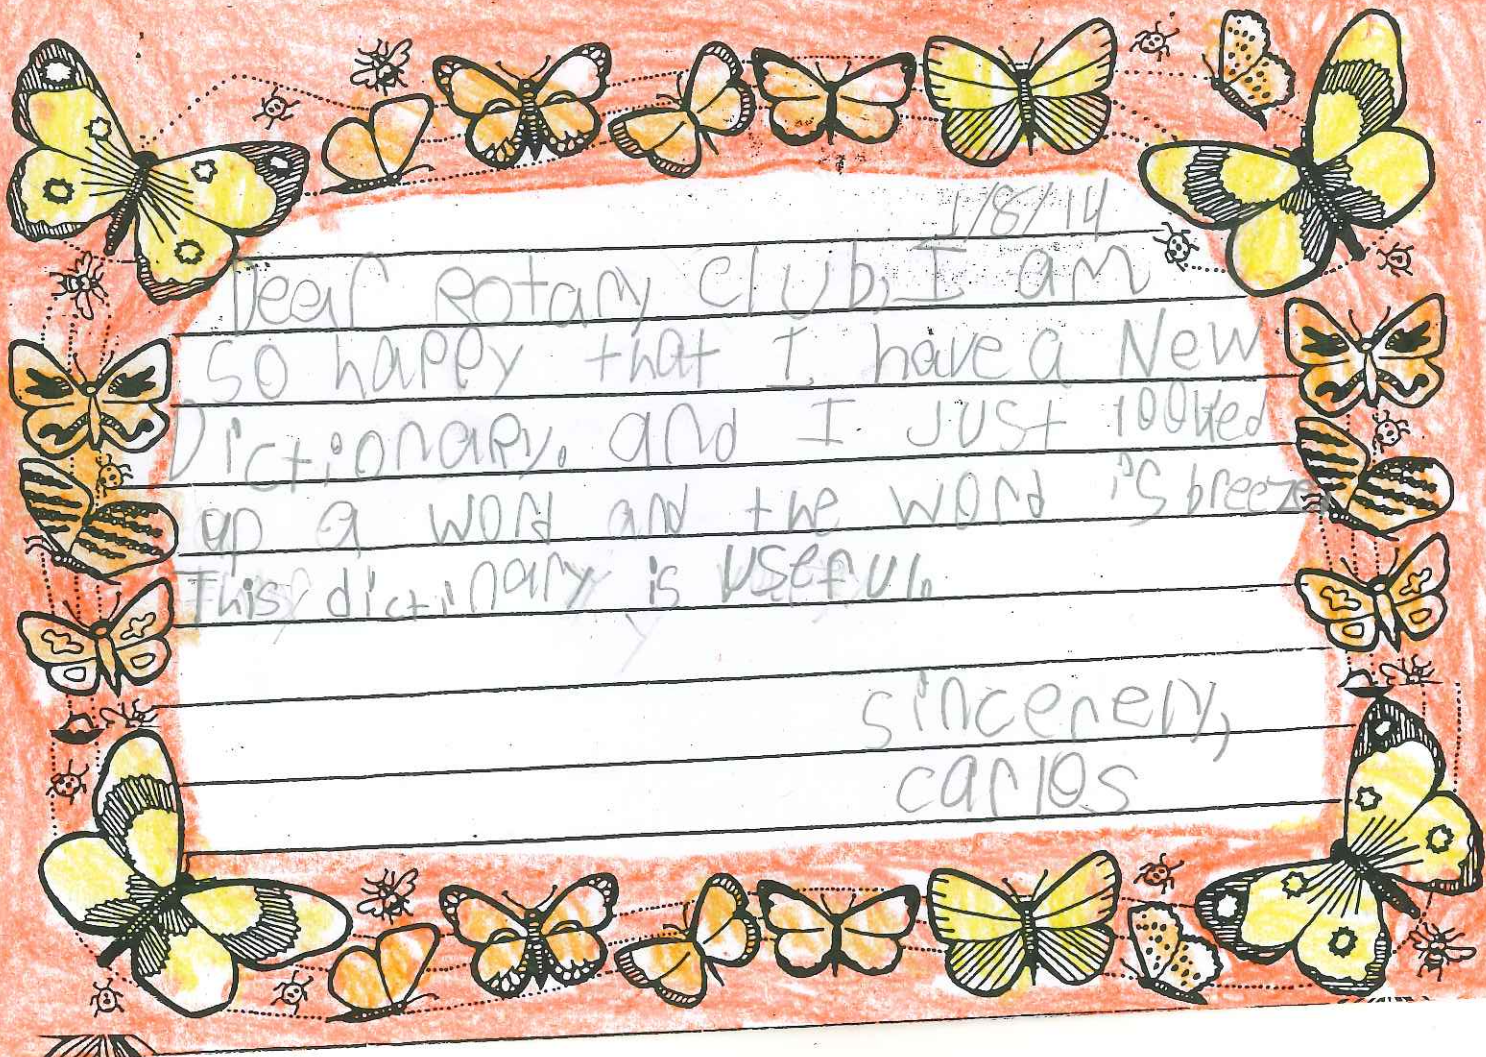 1/8/14
Dear Rotary Club, I am
so happy that I have a New
Dictionary. and I Just looked
up a word and the word is breeze
This dictinary is useful.
sincerely,
carlos